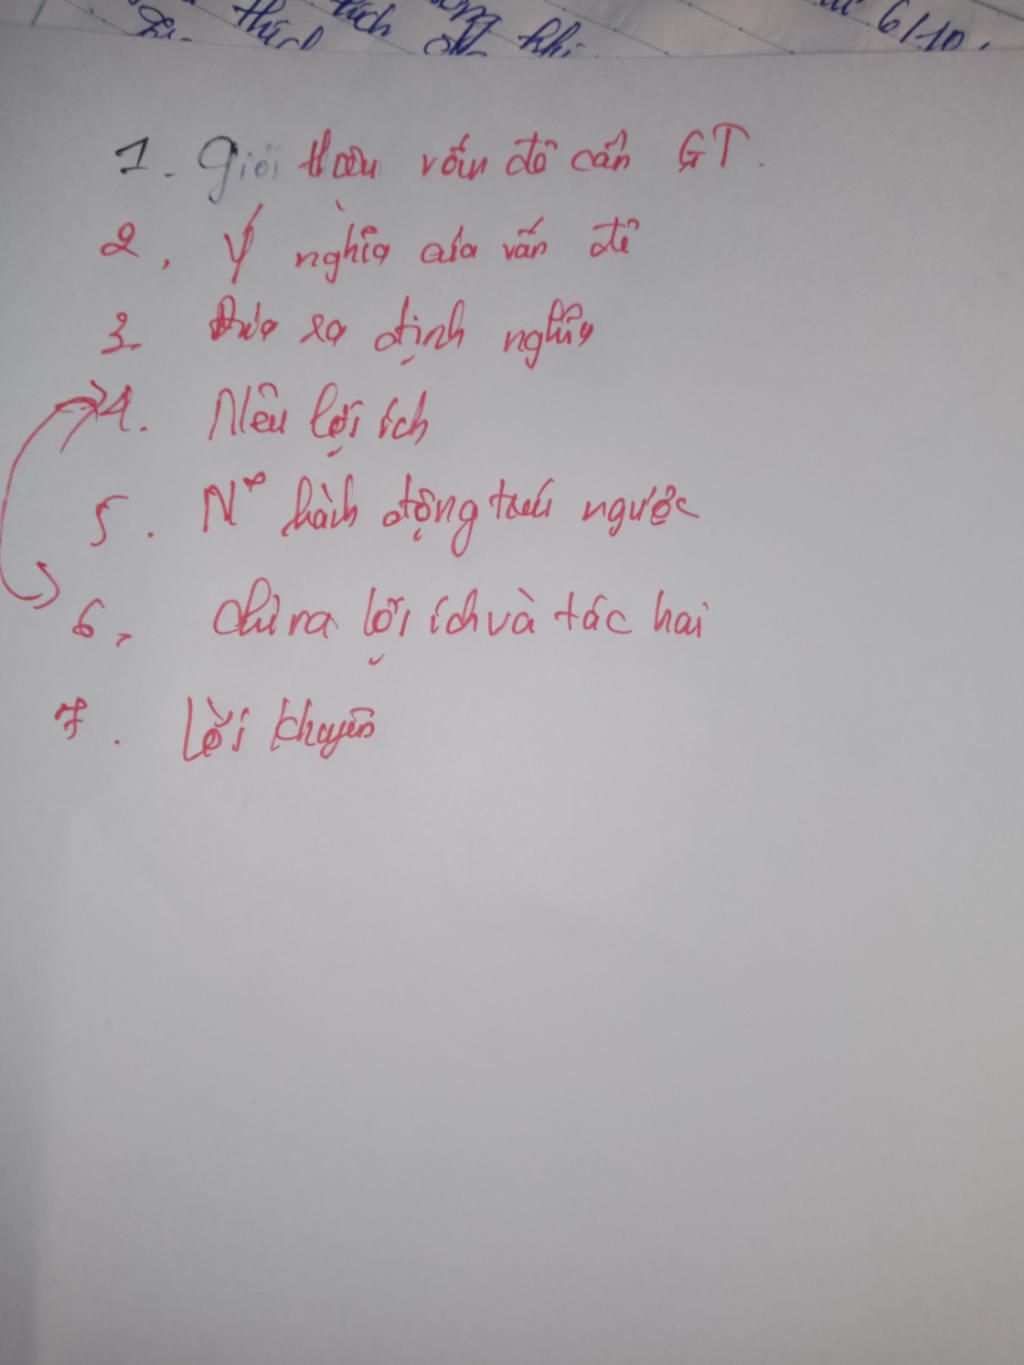 thích
thích
khi
6/10.
1. Giới thiệu vấn đề cần GT.
2. Ý nghĩa của vấn đề
3. Đưa ra định nghĩa
4. Nêu lợi ích
5. N~ hành động trái ngược
6. Chỉ ra lợi ích và tác hại
7. Lời khuyên